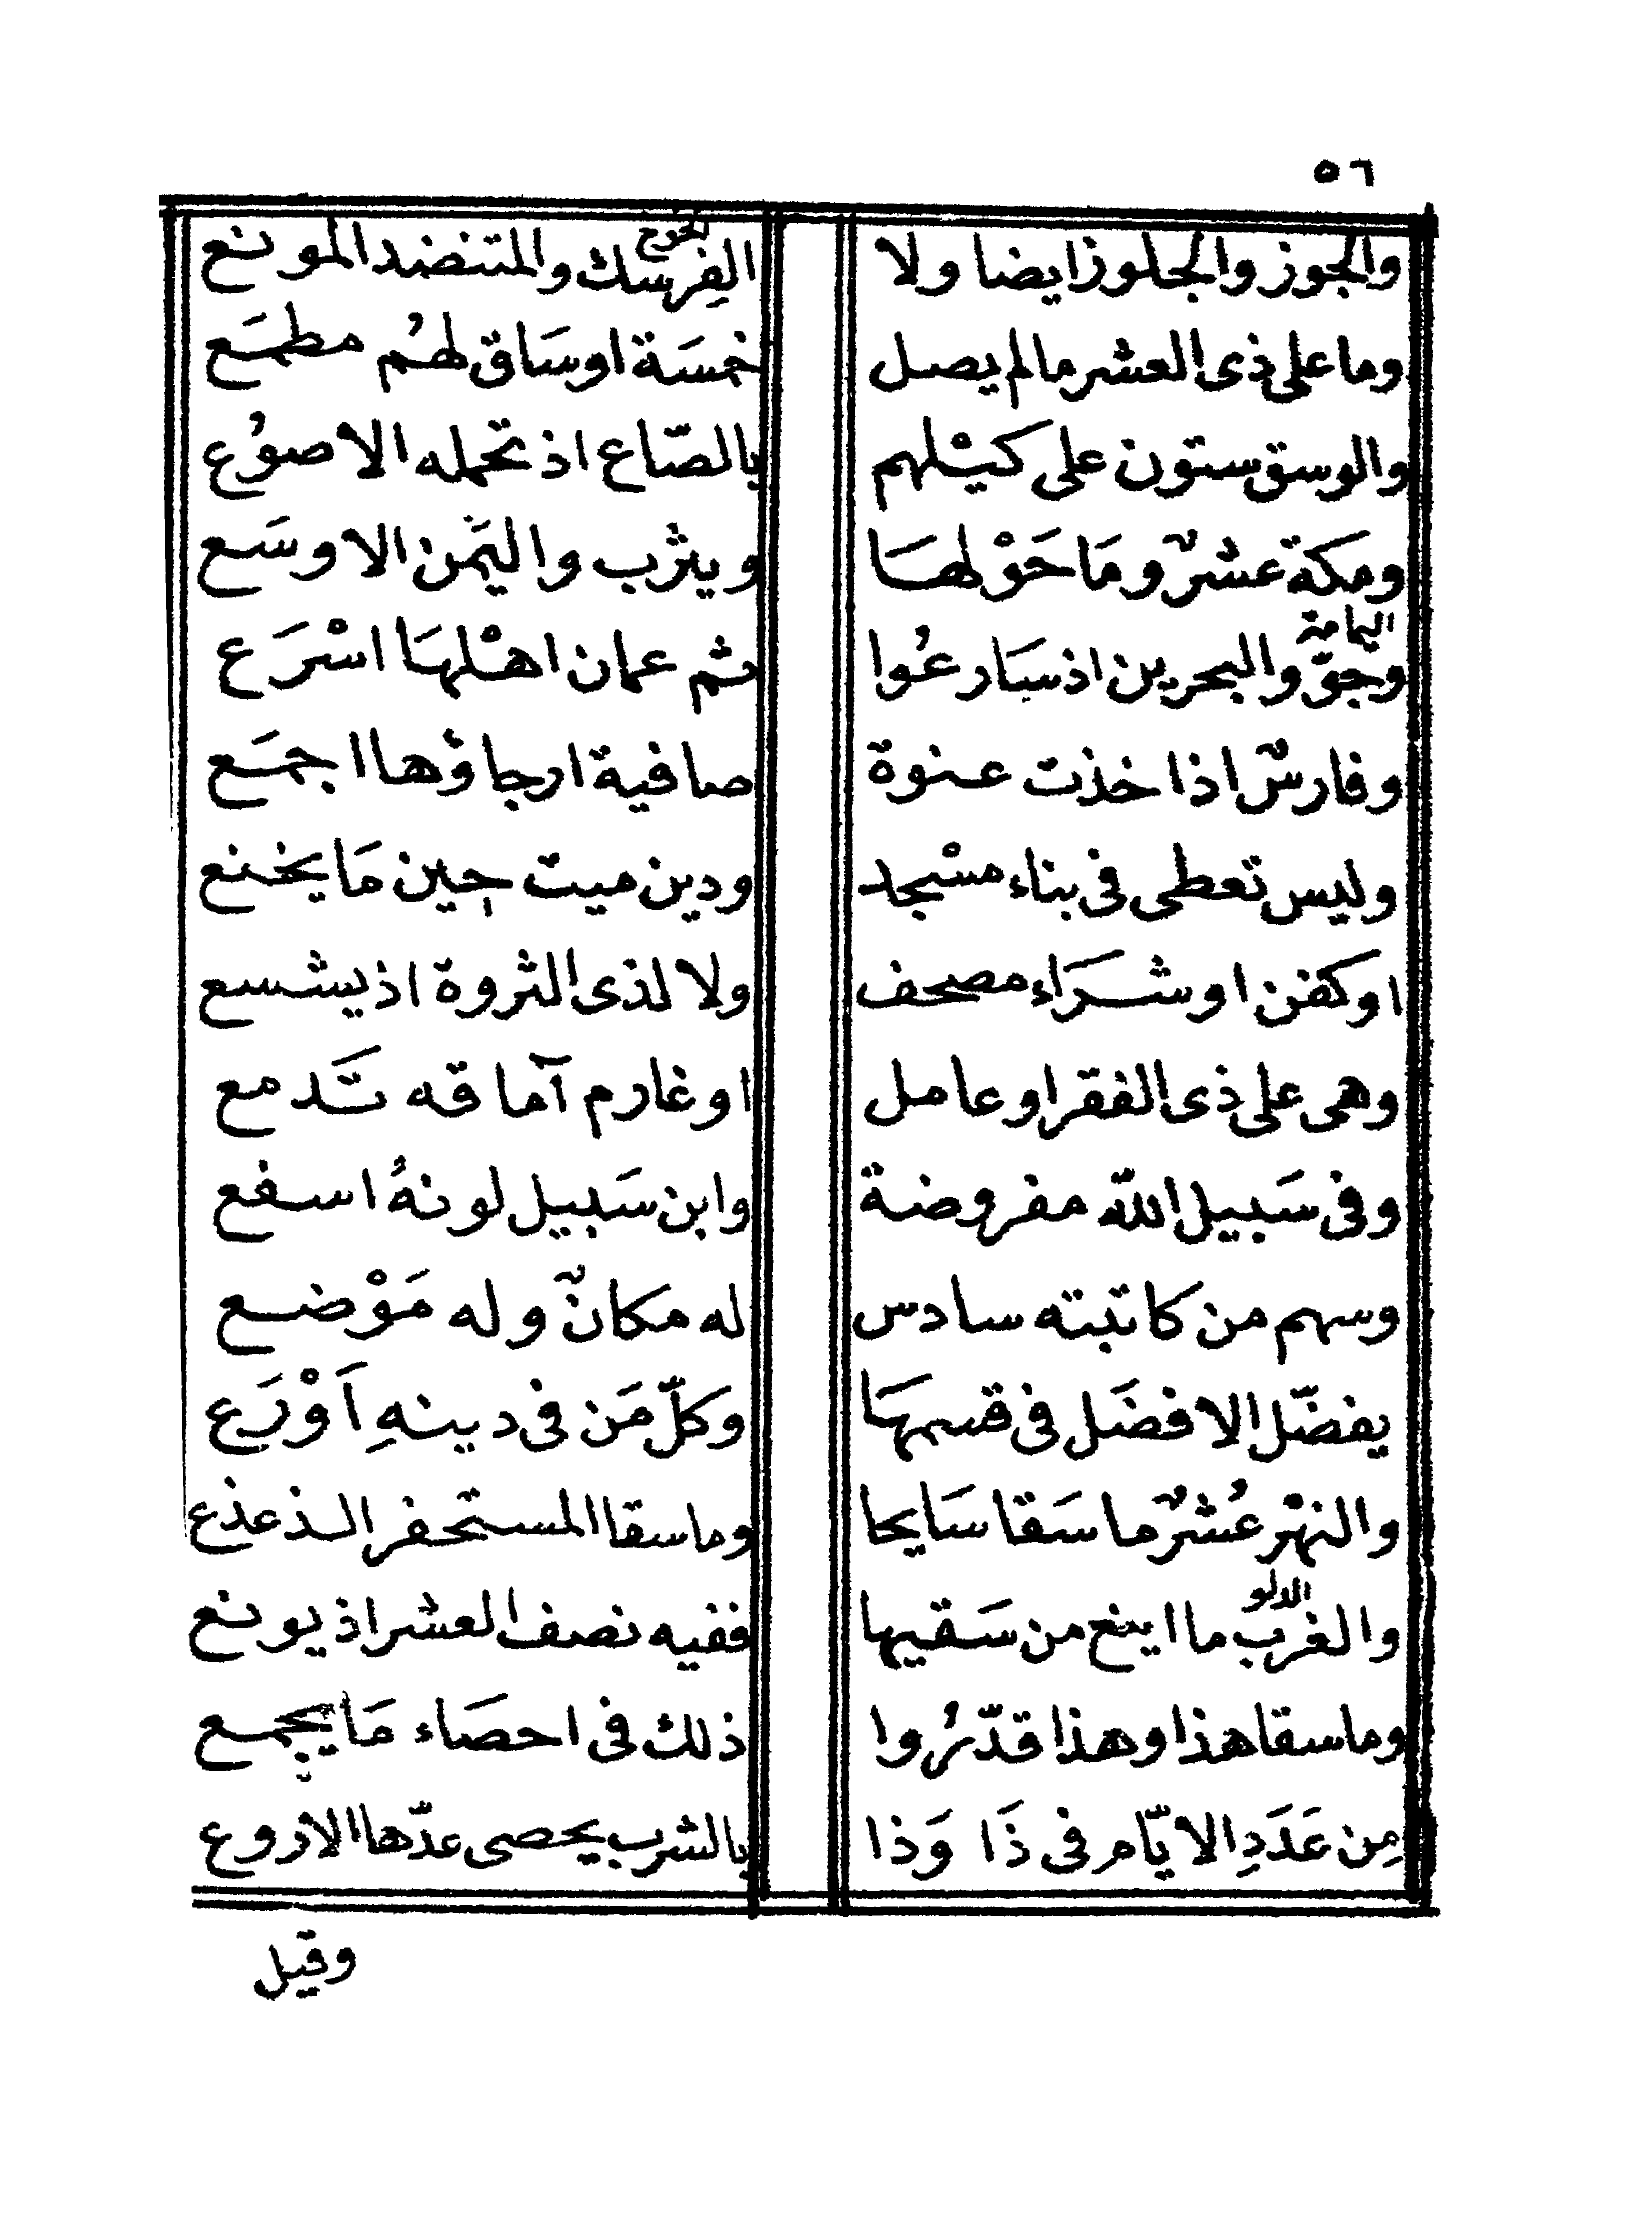 ٥٦
والجوز والجلوز ايضا ولا الفِرسك والمتنضد المونع
الخوخ
وما على ذى العشر مالم يصل خمسَة اوسَاق لهُم مطمَع
والوسق ستون على كيْلهم بالصّاع اذ تحمله الاصوُع
ومكة عشرٌ ومَا حَوْلهَا ويثرب واليَمن الاوسَع
اليمامة
وجوّ والبحرين اذ سَارعُوا ثم عمان اهْلهَا اسْرَع
وفارسٌ اذا خذت عنوة صافية ارجاؤُها اجمَع
وليس تعطى فى بناء مسْجد ودين ميت حين مَا يخنع
اوكفن او شرَاء مصحف ولا لذى الثروة اذ يشسع
وهى على ذى الفقر او عامل او غارم آماقه تَدمع
وفى سَبيل اللّه مفروضة وابن سَبيل لونهُ اسفع
وسهم من كاتبته سادس له مكانٌ وله مَوْضع
يفضّل الافضَل فى قسمهَا وكلّ مَن فى دينهِ اَوْرَع
والنهْر عُشرٌ ما سَقا سَايحا وما سقا المستحفر الذعذع
الدلو
والغرب ما اينع من سَقيها ففيه نصف العشر اذ يونع
وما سقا هذا وهذا قدّرُوا ذلك فى احصَاء مَا يجمع
مِن عَدَدِ الايّام فى ذَا وَذا بالشرب يحصى عدّها الاروع
وقيل